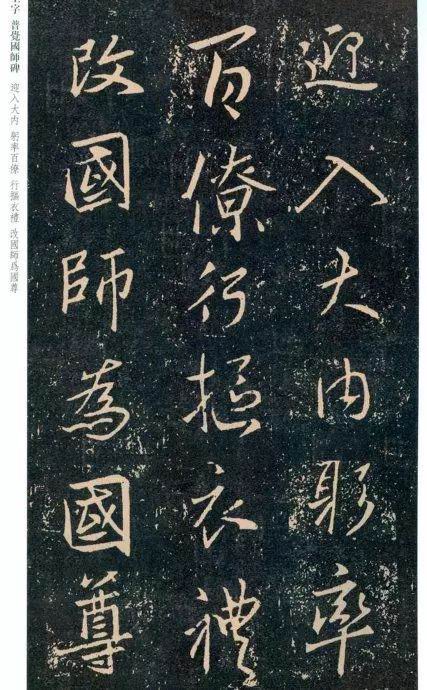 迎入大内躬率
百僚行摳衣禮
改國師為國尊
字 普覺國師碑 迎入大内 躬率百僚 行摳衣禮 改國師爲國尊